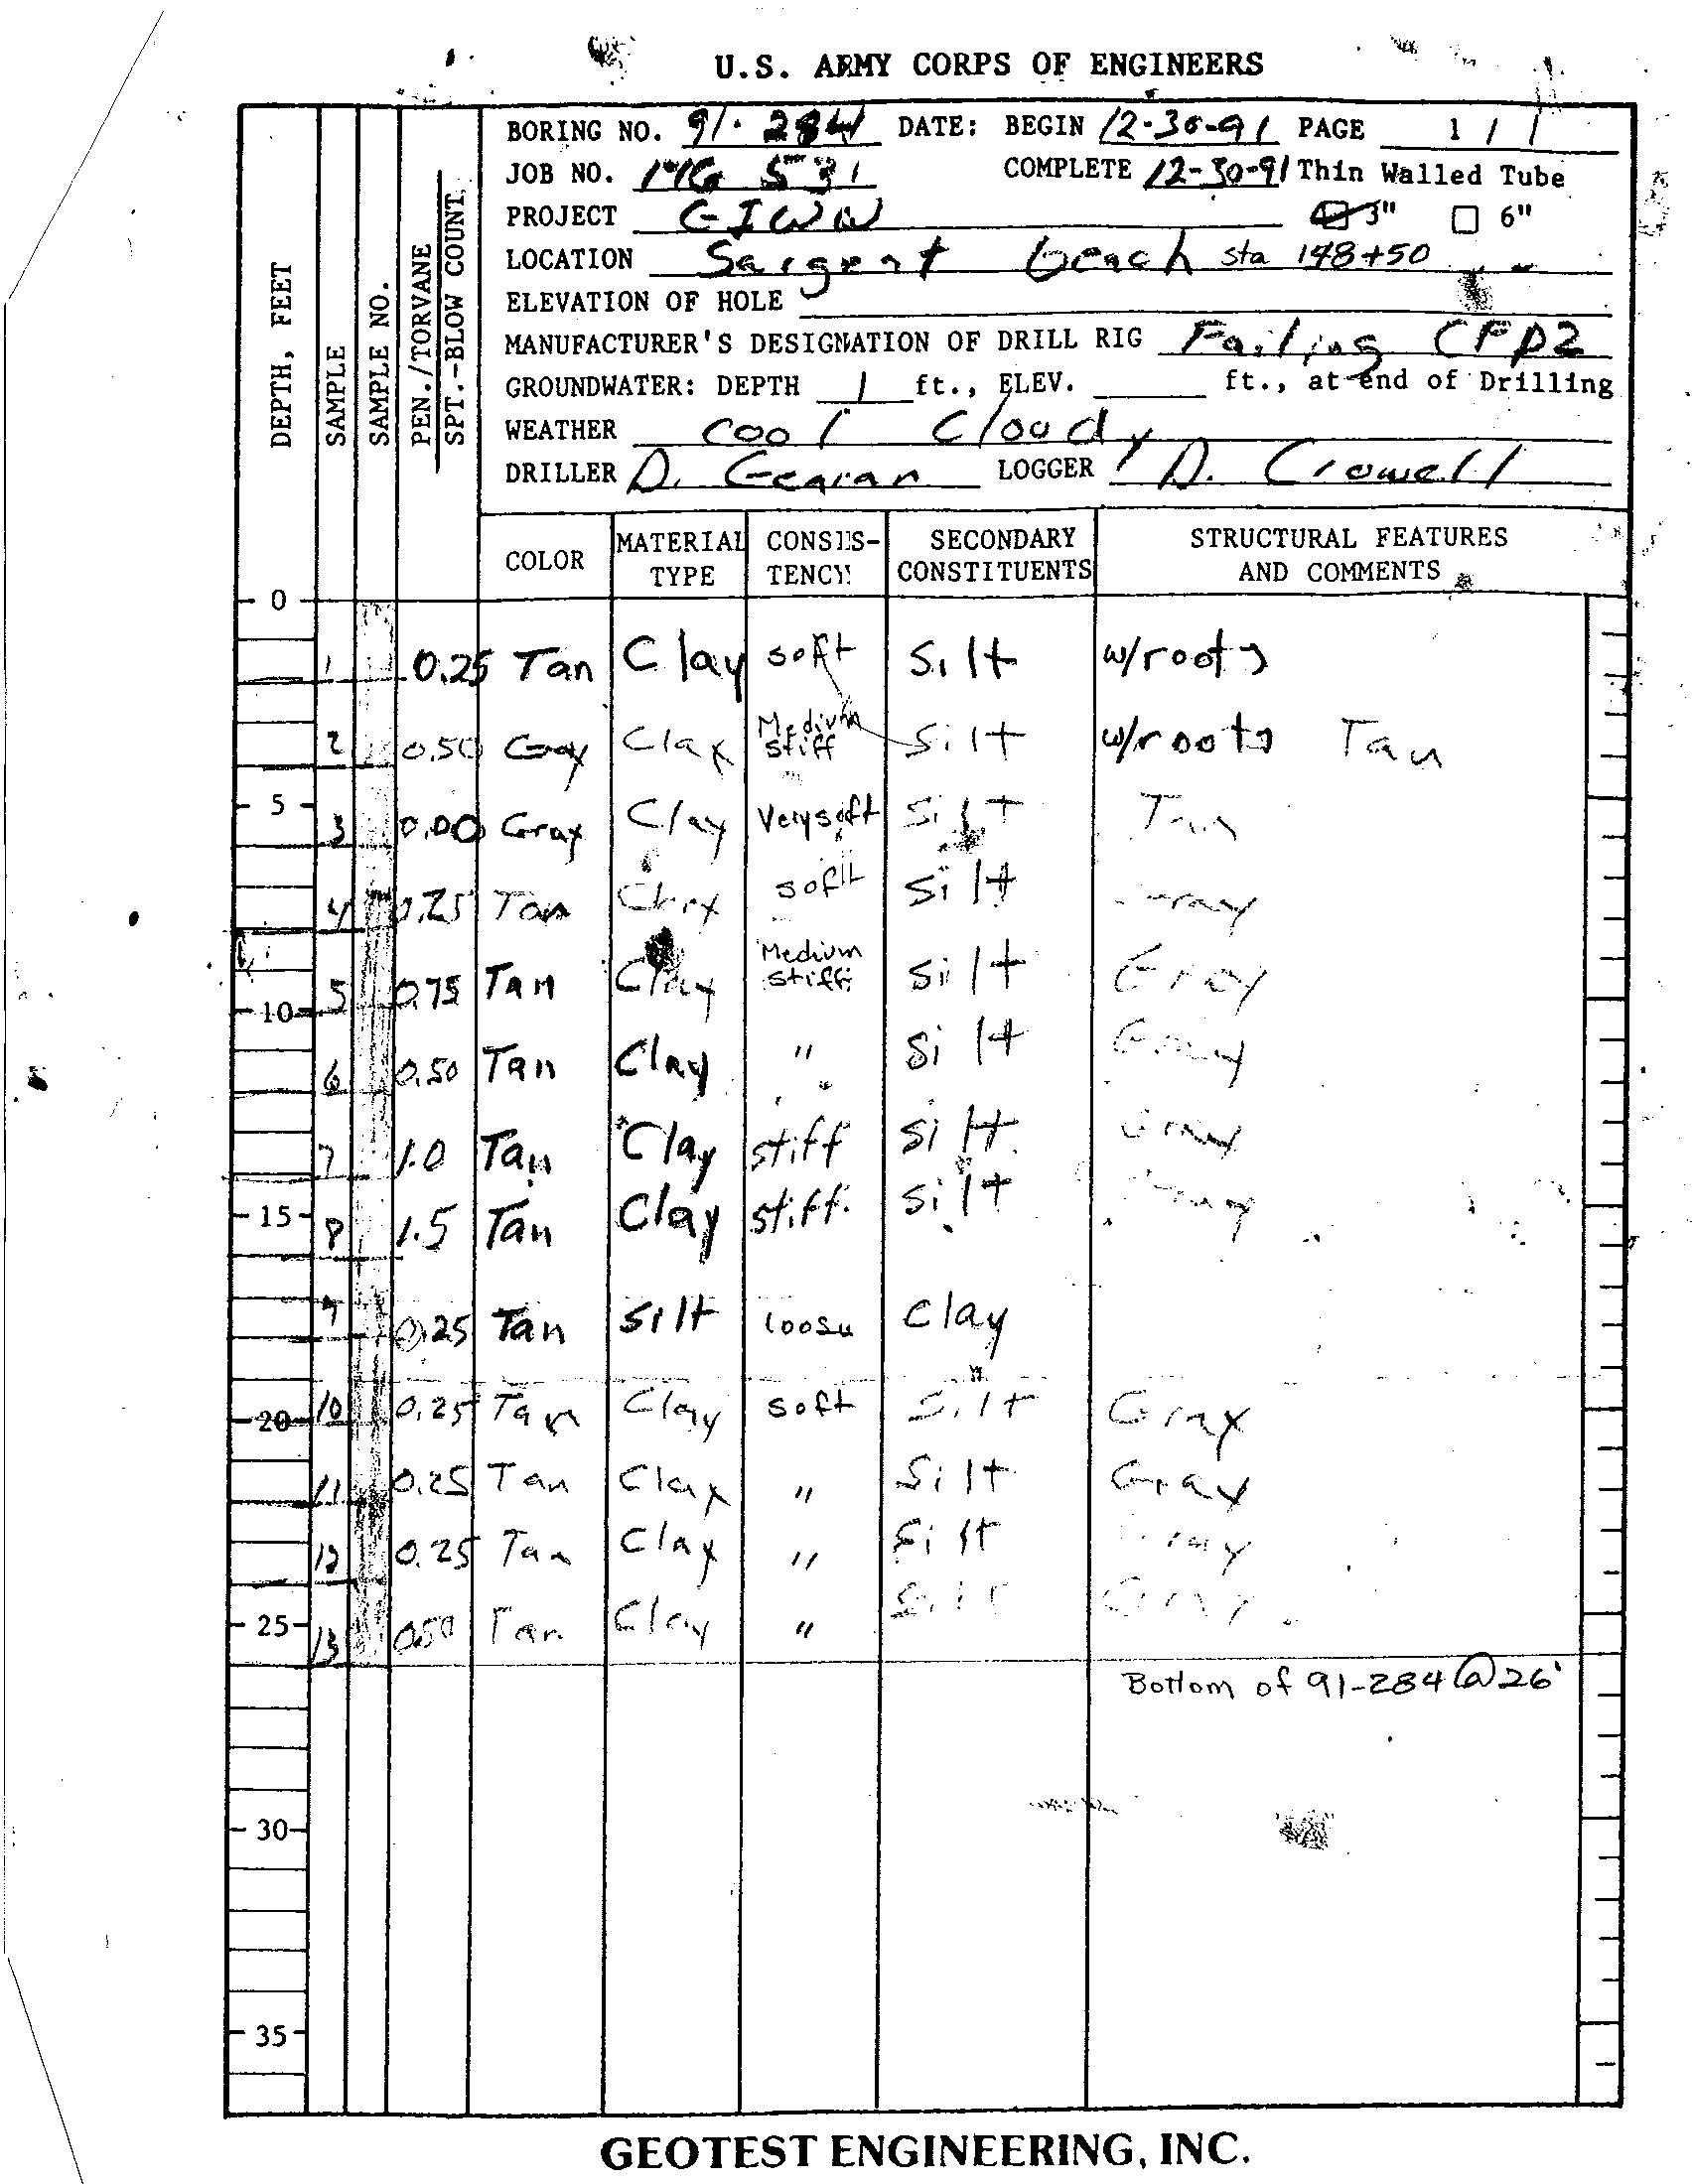 U.S. ARMY CORPS OF ENGINEERS
BORING NO. 91-284 DATE: BEGIN 12-30-91 PAGE 1 / 1
JOB NO. 531 COMPLETE 12-30-91 Thin Walled Tube
PROJECT GIWW 3" 6"
LOCATION Sargent beach sta 148+50
ELEVATION OF HOLE
MANUFACTURER'S DESIGNATION OF DRILL RIG Failing CFD2
GROUNDWATER: DEPTH 1 ft., ELEV. ft., at end of Drilling
WEATHER cool Cloudy
DRILLER D. LOGGER D. Crowell
DEPTH, FEET
SAMPLE
SAMPLE NO.
PEN./TORVANE
SPT.-BLOW COUNT
COLOR MATERIAL TYPE CONSIS-TENCY SECONDARY CONSTITUENTS STRUCTURAL FEATURES AND COMMENTS
0
1 0.25 Tan Clay soft Silt w/roots
2 0.50 Gray Clay Medium stiff Silt w/roots Tan
5
3 0.00 Gray Clay Very soft Silt Tan
4 0.25 Tan Clay soft Silt Gray
5 0.75 Tan Clay Medium stiff Silt Gray
10
6 0.50 Tan Clay " Silt Gray
7 1.0 Tan Clay stiff Silt Gray
15
8 1.5 Tan Clay stiff. Silt Gray
9 0.25 Tan Silt loose Clay
20
10 0.25 Tan Clay soft Silt Gray
11 0.25 Tan Clay " Silt Gray
12 0.25 Tan Clay " Silt Gray
25
13 0.50 Tan Clay " Silt Gray
Bottom of 91-284 @ 26'
30
35
GEOTEST ENGINEERING, INC.